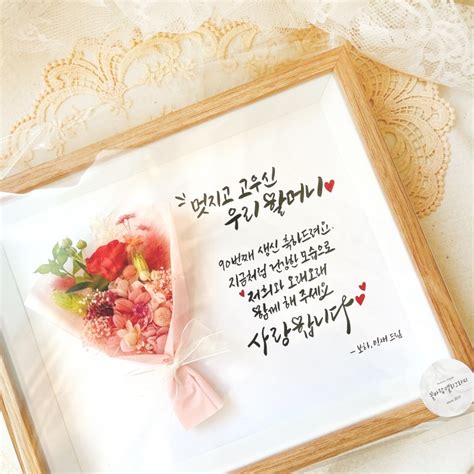 멋지고 고우신
우리 할머니
90번째 생신 축하드려요.
지금처럼 건강한 모습으로
저희와 오래오래
함께 해 주세요
사랑합니다